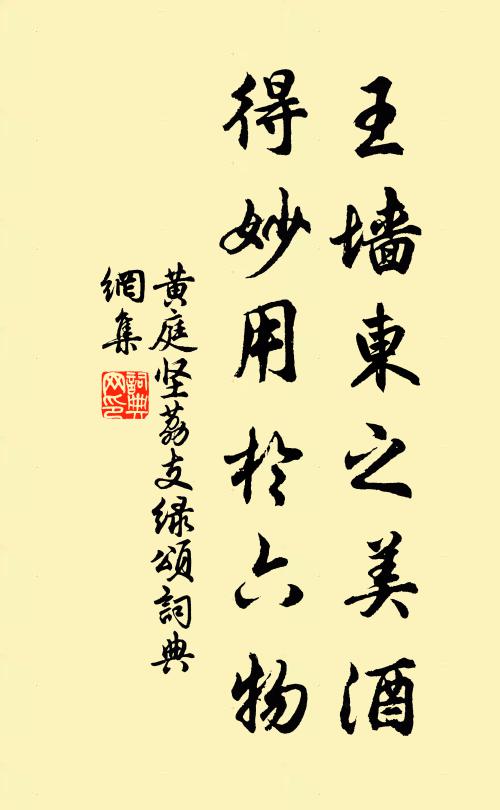 王墙東之美酒
得妙用於六物
黄庭坚荔支绿頌詞典
網集
詞典
网印